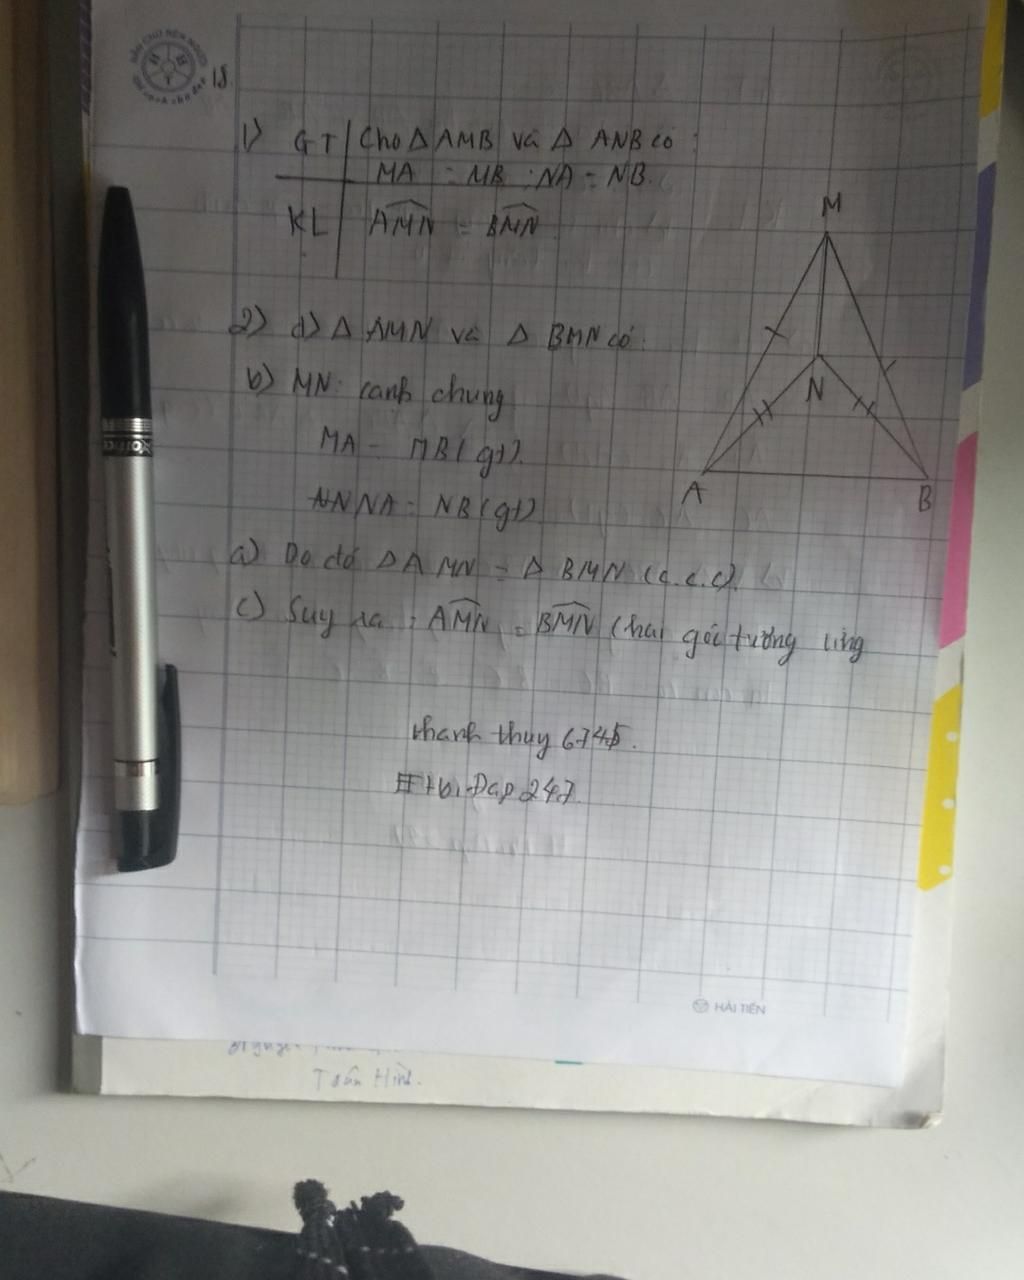 18
1) GT Cho Δ AMB và Δ ANB có :
MA = MB ; NA = NB.
KL AMN = BMN
M
N
A
B
2) d) Δ AMN và Δ BMN có :
b) MN: cạnh chung
MA = MB (gt).
NA = NB (gt)
a) Do đó Δ AMN = Δ BMN (c.c.c).
c) Suy ra : AMN = BMN (hai góc tương ứng
thanh thuy 6745.
HẢI TIẾN
Toán Hình.